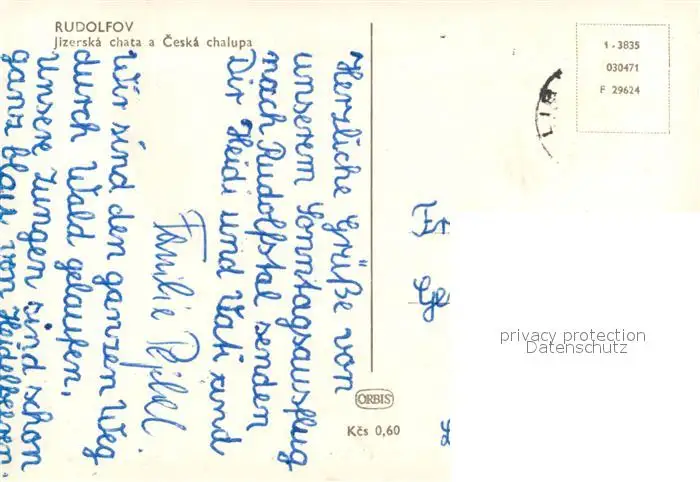 RUDOLFOV
Jizerská chata a Česká chalupa
Herzliche Grüße von
unserem Sonntagsausflug
nach Rudolfstal senden
Dir Heidi und Vati und
Familie
Wir sind den ganzen Weg
durch Wald gelaufen.
Unsere Zungen sind schon
ganz blau von Heidelbeeren.
1 - 3835
030471
F 29624
ORBIS
Kčs 0,60
privacy protection
Datenschutz